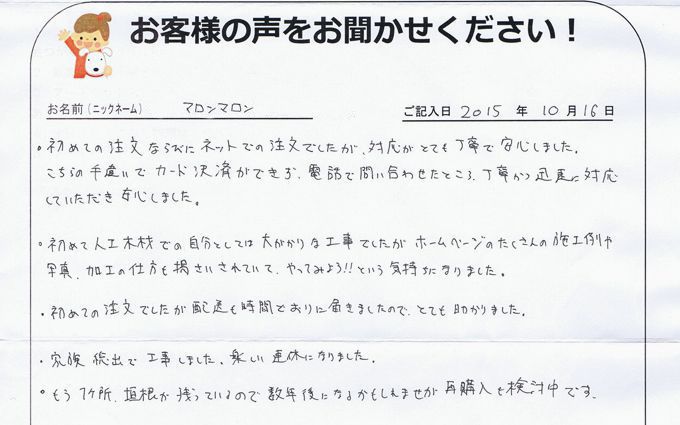 お客様の声をお聞かせください！
お名前（ニックネーム） マロンマロン ご記入日 2015 年 10 月 16 日
・初めての注文ならびにネットでの注文でしたが、対応がとても丁寧で安心しました。
こちらの手違いでカード決済ができず、電話で問い合わせたところ、丁寧かつ迅速に対応
していただき安心しました。
・初めて人工木材での自分としては大がかりな工事でしたがホームページのたくさんの施工例や
写真、加工の仕方も掲さいされていて、やってみよう!!という気持ちになりました。
・初めての注文でしたが配送も時間どおりに届きましたので、とても助かりました。
・家族総出で工事しました、楽しい連休になりました。
・もう1ヶ所、垣根が残っているので数年後になるかもしれませが再購入を検討中です。